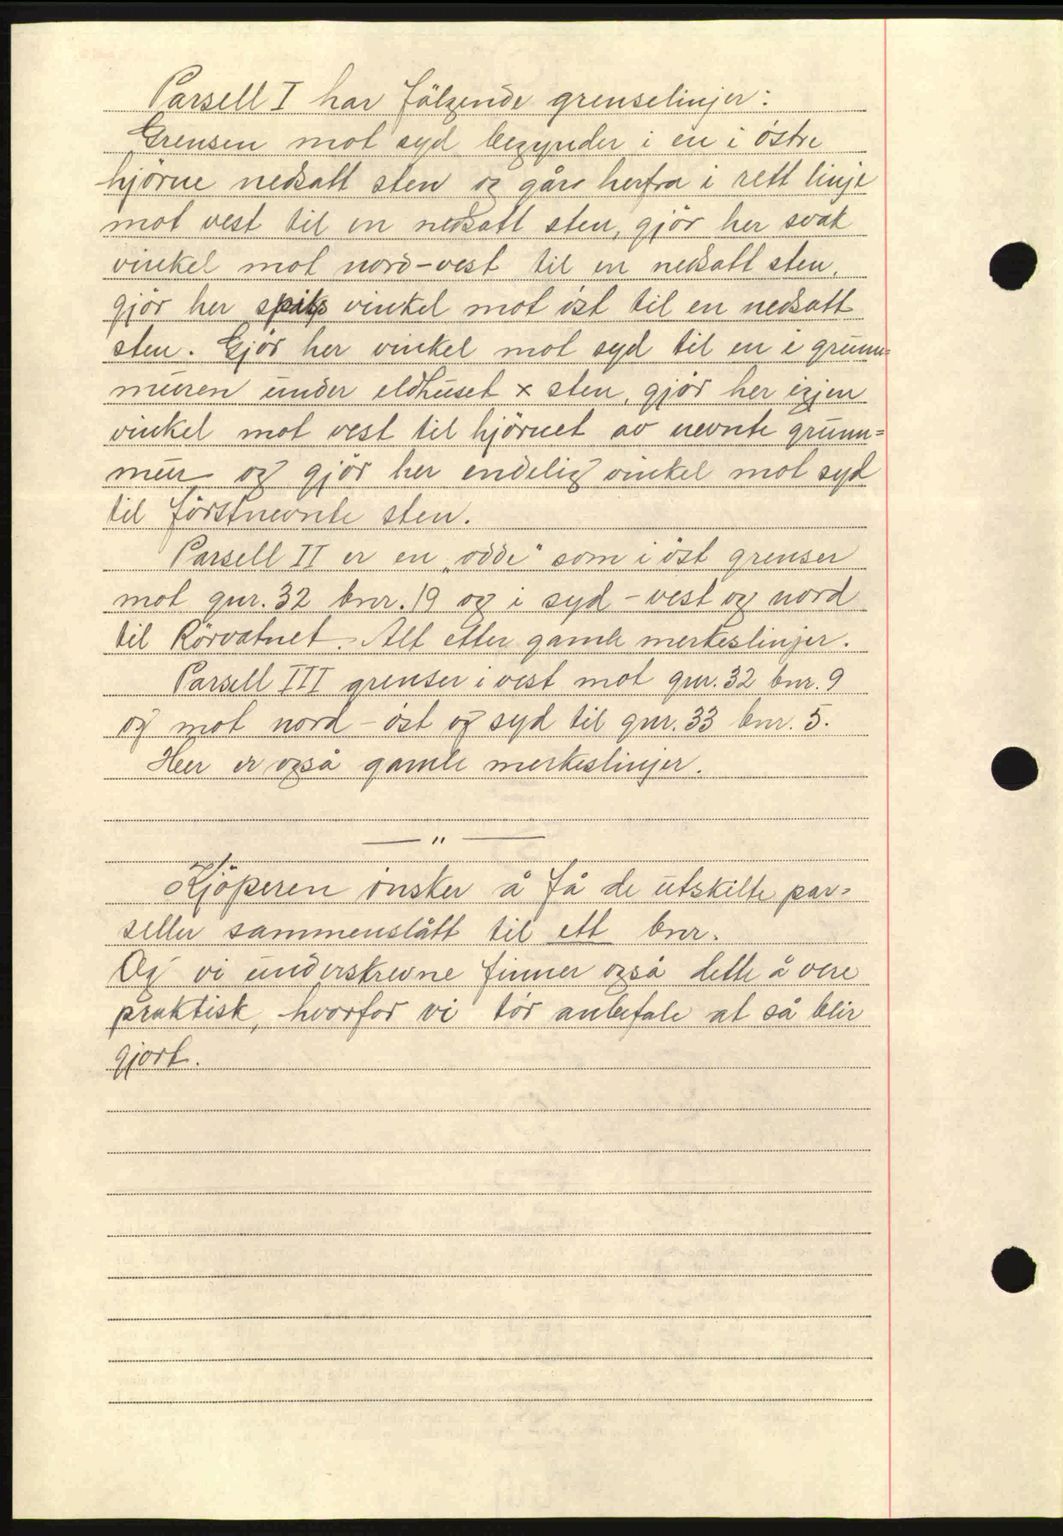 Parsell I har fölgende grenselinjer:
Grensen mot syd begynder i en i östre
hjörne nedsatt sten og går herfra i rett linje
mot vest til en nedsatt sten, gjör her svak
vinkel mot nord-vest til en nedsatt sten,
gjör her spits vinkel mot öst til en nedsatt
sten. Gjör her vinkel mot syd til en i grunn=
muren under eldhuset x sten, gjör her igjen
vinkel mot vest til hjörnet av nevnte grunn=
mur og gjör her endelig vinkel mot syd
til förstnevnte sten.
Parsell II er en „odde" som i öst grenser
mot gnr. 32 bnr. 19 og i syd - vest og nord
til Rörvatnet. Alt etter gamle merkeslinjer.
Parsell III grenser i vest mot gnr. 32 bnr. 9
og mot nord - öst og syd til gnr. 33 bnr. 5.
Her er også gamle merkeslinjer.
— " —
Kjöperen önsker å få de utskilte par=
seller sammenslått til ett bnr.
Og vi underskrevne finner også dette å vere
praktisk, hvorfor vi tör anbefale at så blir
gjort.